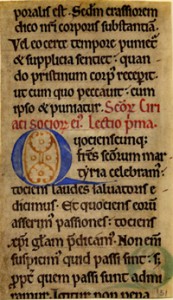 poralis est. Sedm crassiorem
dico nr̄i corporis substantiā.
Vd eo certe tempore pumet᷑
& supplicia sentiet: quan
do pristinum corp᷒ recepit.
ut cum quo peccauit: cum
ipso & puniatur. Scōr᷑ Ciri
aci socior᷑ ei᷒. Lectio pͥma.
Quociensc̄nq;
fr̄es sc̄orum mar
tyria celebram᷒:
tociens laudes saluatoris e
dicimus. Et quociens eorū
asserim᷒ passiones: tociens
xp̄i glam p̄dicam᷒. Non em̄
suspiciūt quid passi sunt: s;
propt quem passi sunt admi